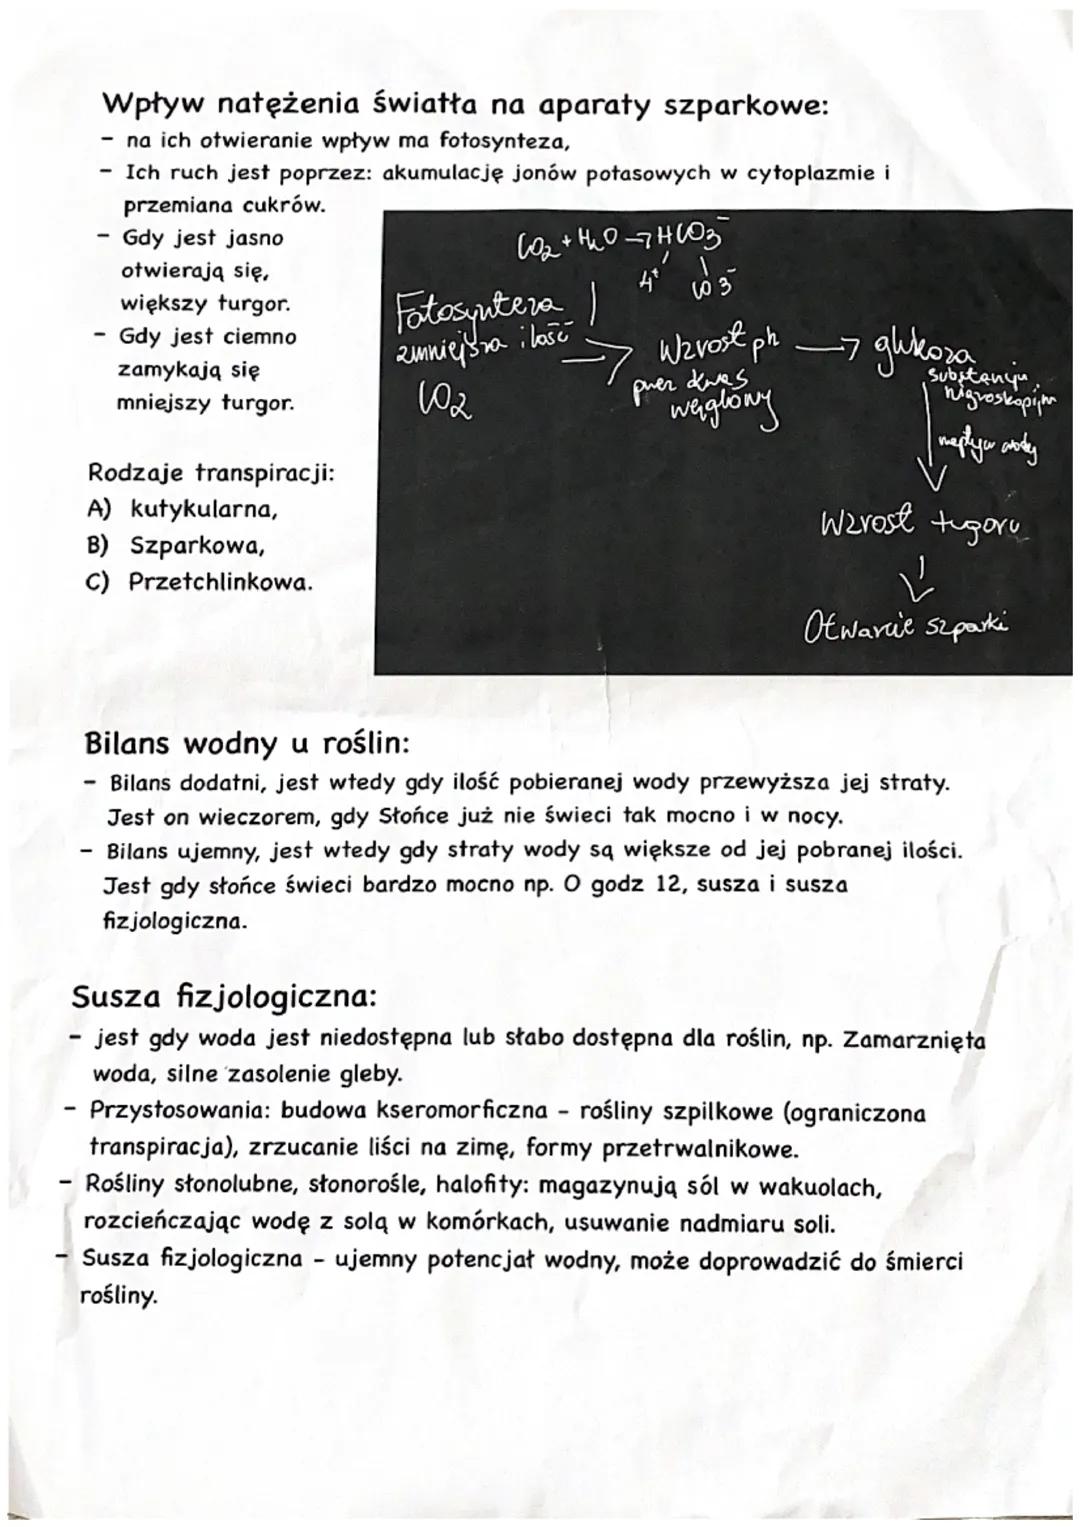 Wpływ natężenia światła na aparaty szparkowe:
- na ich otwieranie wpływ ma fotosynteza,
- Ich ruch jest poprzez: akumulację jonów potasowych w cytoplazmie i
przemiana cukrów.
- Gdy jest jasno
otwierają się,
większy turgor.
- Gdy jest ciemno
zamykają się
mniejszy turgor.
CO2 + H2O → HCO3-
H+ CO3-
Fotosynteza
zmniejsza ilość
CO2
→ Wzrost ph
przez kwas
węglowy
→ glukoza
substancja
higroskopijna
napływ wody
Wzrost tugoru
Otwarcie szparki
Rodzaje transpiracji:
A) kutykularna,
B) Szparkowa,
C) Przetchlinkowa.
Bilans wodny u roślin:
- Bilans dodatni, jest wtedy gdy ilość pobieranej wody przewyższa jej straty.
Jest on wieczorem, gdy Słońce już nie świeci tak mocno i w nocy.
- Bilans ujemny, jest wtedy gdy straty wody są większe od jej pobranej ilości.
Jest gdy słońce świeci bardzo mocno np. O godz 12, susza i susza
fizjologiczna.
Susza fizjologiczna:
- jest gdy woda jest niedostępna lub słabo dostępna dla roślin, np. Zamarznięta
woda, silne zasolenie gleby.
- Przystosowania: budowa kseromorficzna - rośliny szpilkowe (ograniczona
transpiracja), zrzucanie liści na zimę, formy przetrwalnikowe.
- Rośliny słonolubne, słonorośle, halofity: magazynują sól w wakuolach,
rozcieńczając wodę z solą w komórkach, usuwanie nadmiaru soli.
- Susza fizjologiczna - ujemny potencjał wodny, może doprowadzić do śmierci
rośliny.